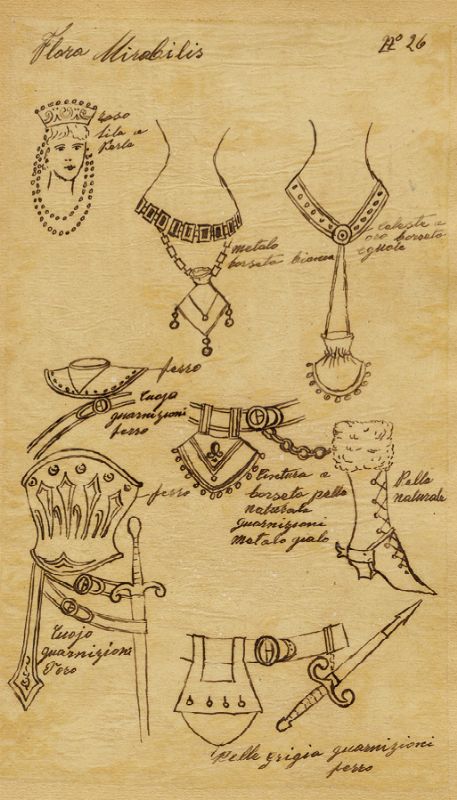 Flora Mirabilis
No 26
raso
lila e
Perle
metalo
borsata bianca
celeste e
oro borsata
eguale
ferro
Cuojo
guarnizioni
ferro
ferro
Cintura e
borsata pelle
naturale
guarnizioni
metalo gialo
Pelle
naturale
Cuojo
guarnizioni
Pelle grigia guarnizioni
ferro